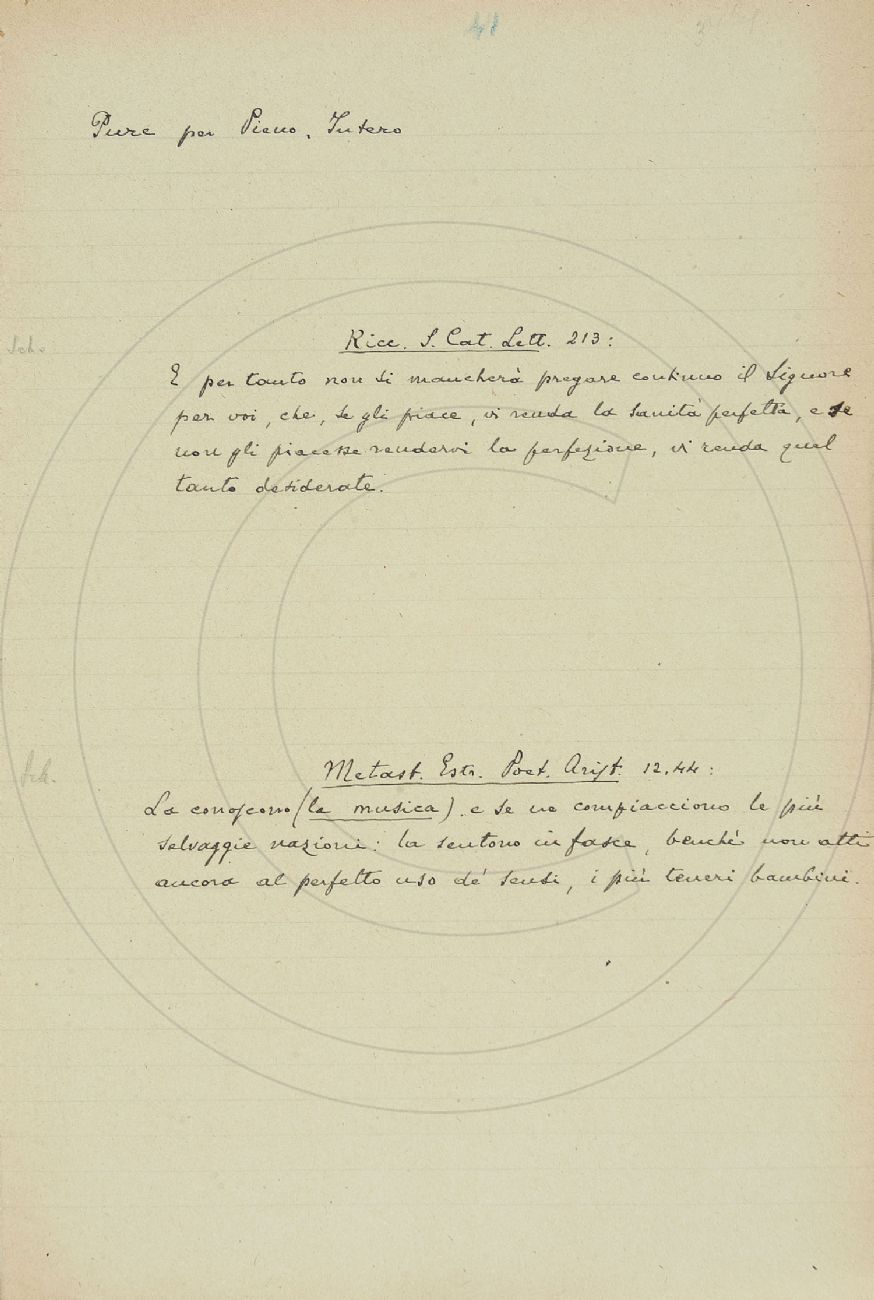 41
Pure per Pieno, Intero
Ricc. S. Cat. Lett. 213:
E per tanto non si mancherà pregare continuo il Signore
per voi, che, se gli piace, vi renda la sanità perfetta, e se
non gli piacesse rendervi la perfezione, vi renda quel
tanto desiderate.
Metast. Estr. Poet. Arist. 12.44:
La conoscono (la musica) e se ne compiacciono le più
selvaggie nazioni: la sentono in fasce, benchè non atti
ancora al perfetto uso de' sensi, i più teneri bambini.